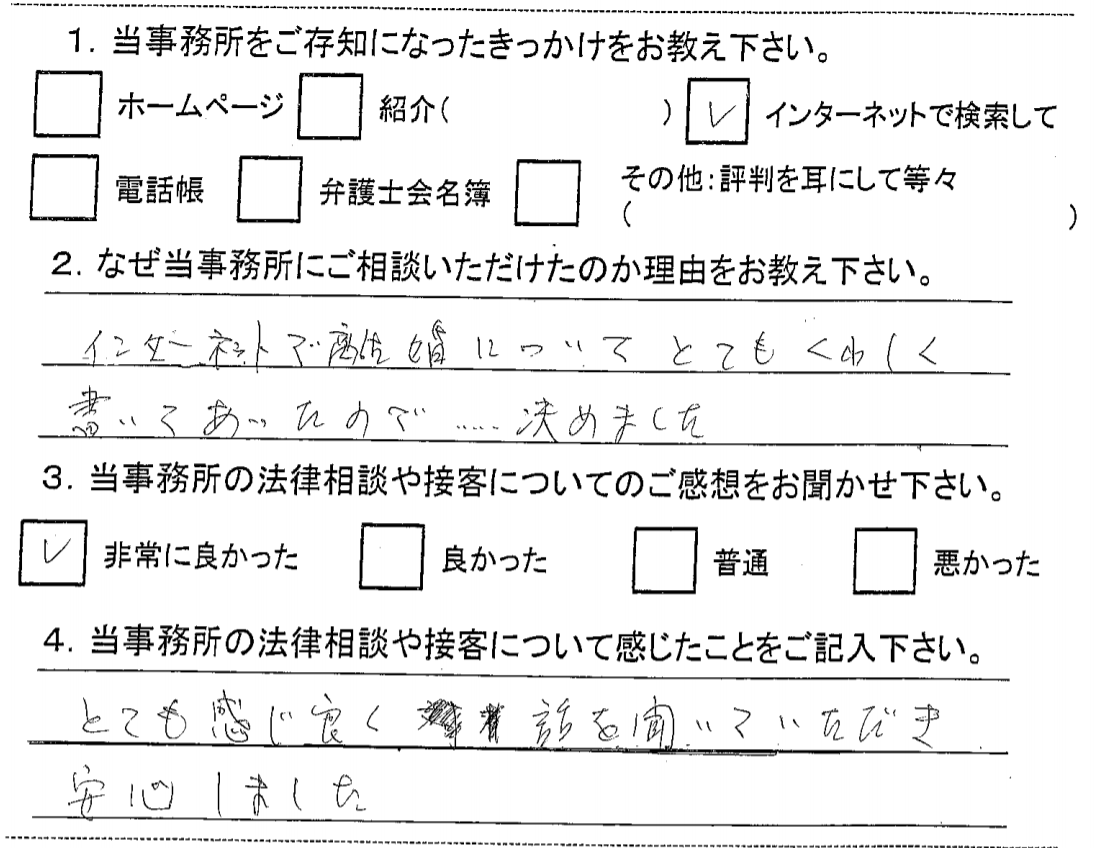 1. 当事務所をご存知になったきっかけをお教え下さい。
ホームページ 紹介( ) インターネットで検索して
電話帳 弁護士会名簿 その他:評判を耳にして等々
( )
2. なぜ当事務所にご相談いただけたのか理由をお教え下さい。
インターネットで離婚についてとてもくわしく
書いてあったので……決めました
3. 当事務所の法律相談や接客についてのご感想をお聞かせ下さい。
非常に良かった 良かった 普通 悪かった
4. 当事務所の法律相談や接客について感じたことをご記入下さい。
とても感じ良く 話を聞いていただき
安心しました